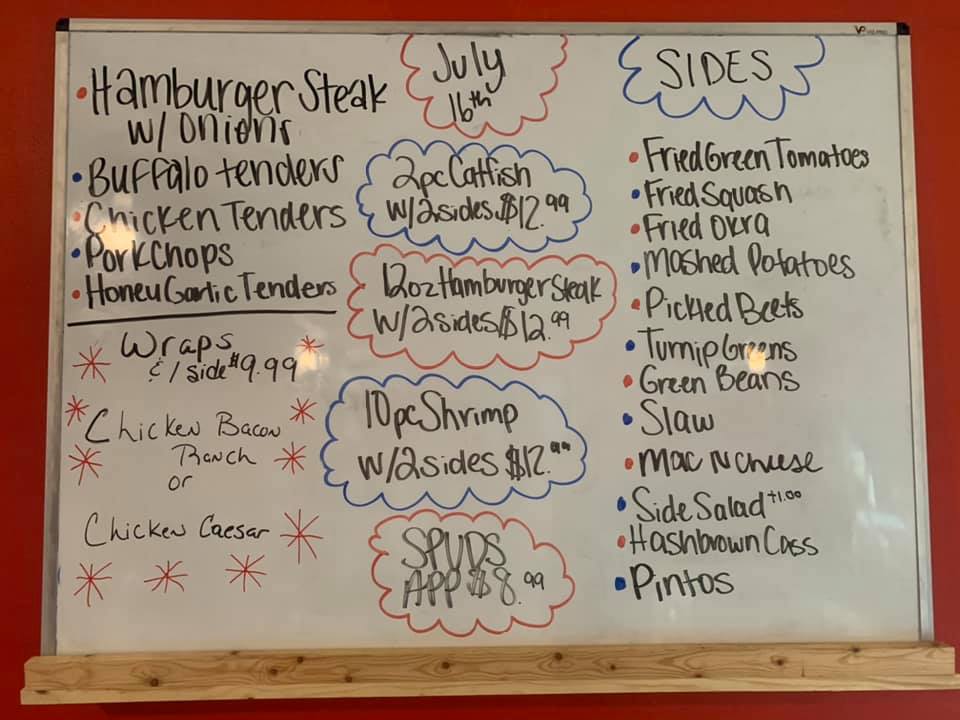 Hamburger Steak
w/ Onions
Buffalo tenders
Chicken Tenders
Pork Chops
Honey Garlic Tenders
Wraps
& 1 side $9.99
Chicken Bacon
Ranch
or
Chicken Caesar
July
16th
2pc Catfish
w/2sides $12.99
12oz Hamburger Steak
w/2sides $12.99
10pc Shrimp
w/2sides $12.99
SPUDS
APP $8.99
SIDES
Fried Green Tomatoes
Fried Squash
Fried Okra
Mashed Potatoes
Pickled Beets
Turnip Greens
Green Beans
Slaw
Mac N Cheese
Side Salad +1.00
Hashbrown Cass
Pintos